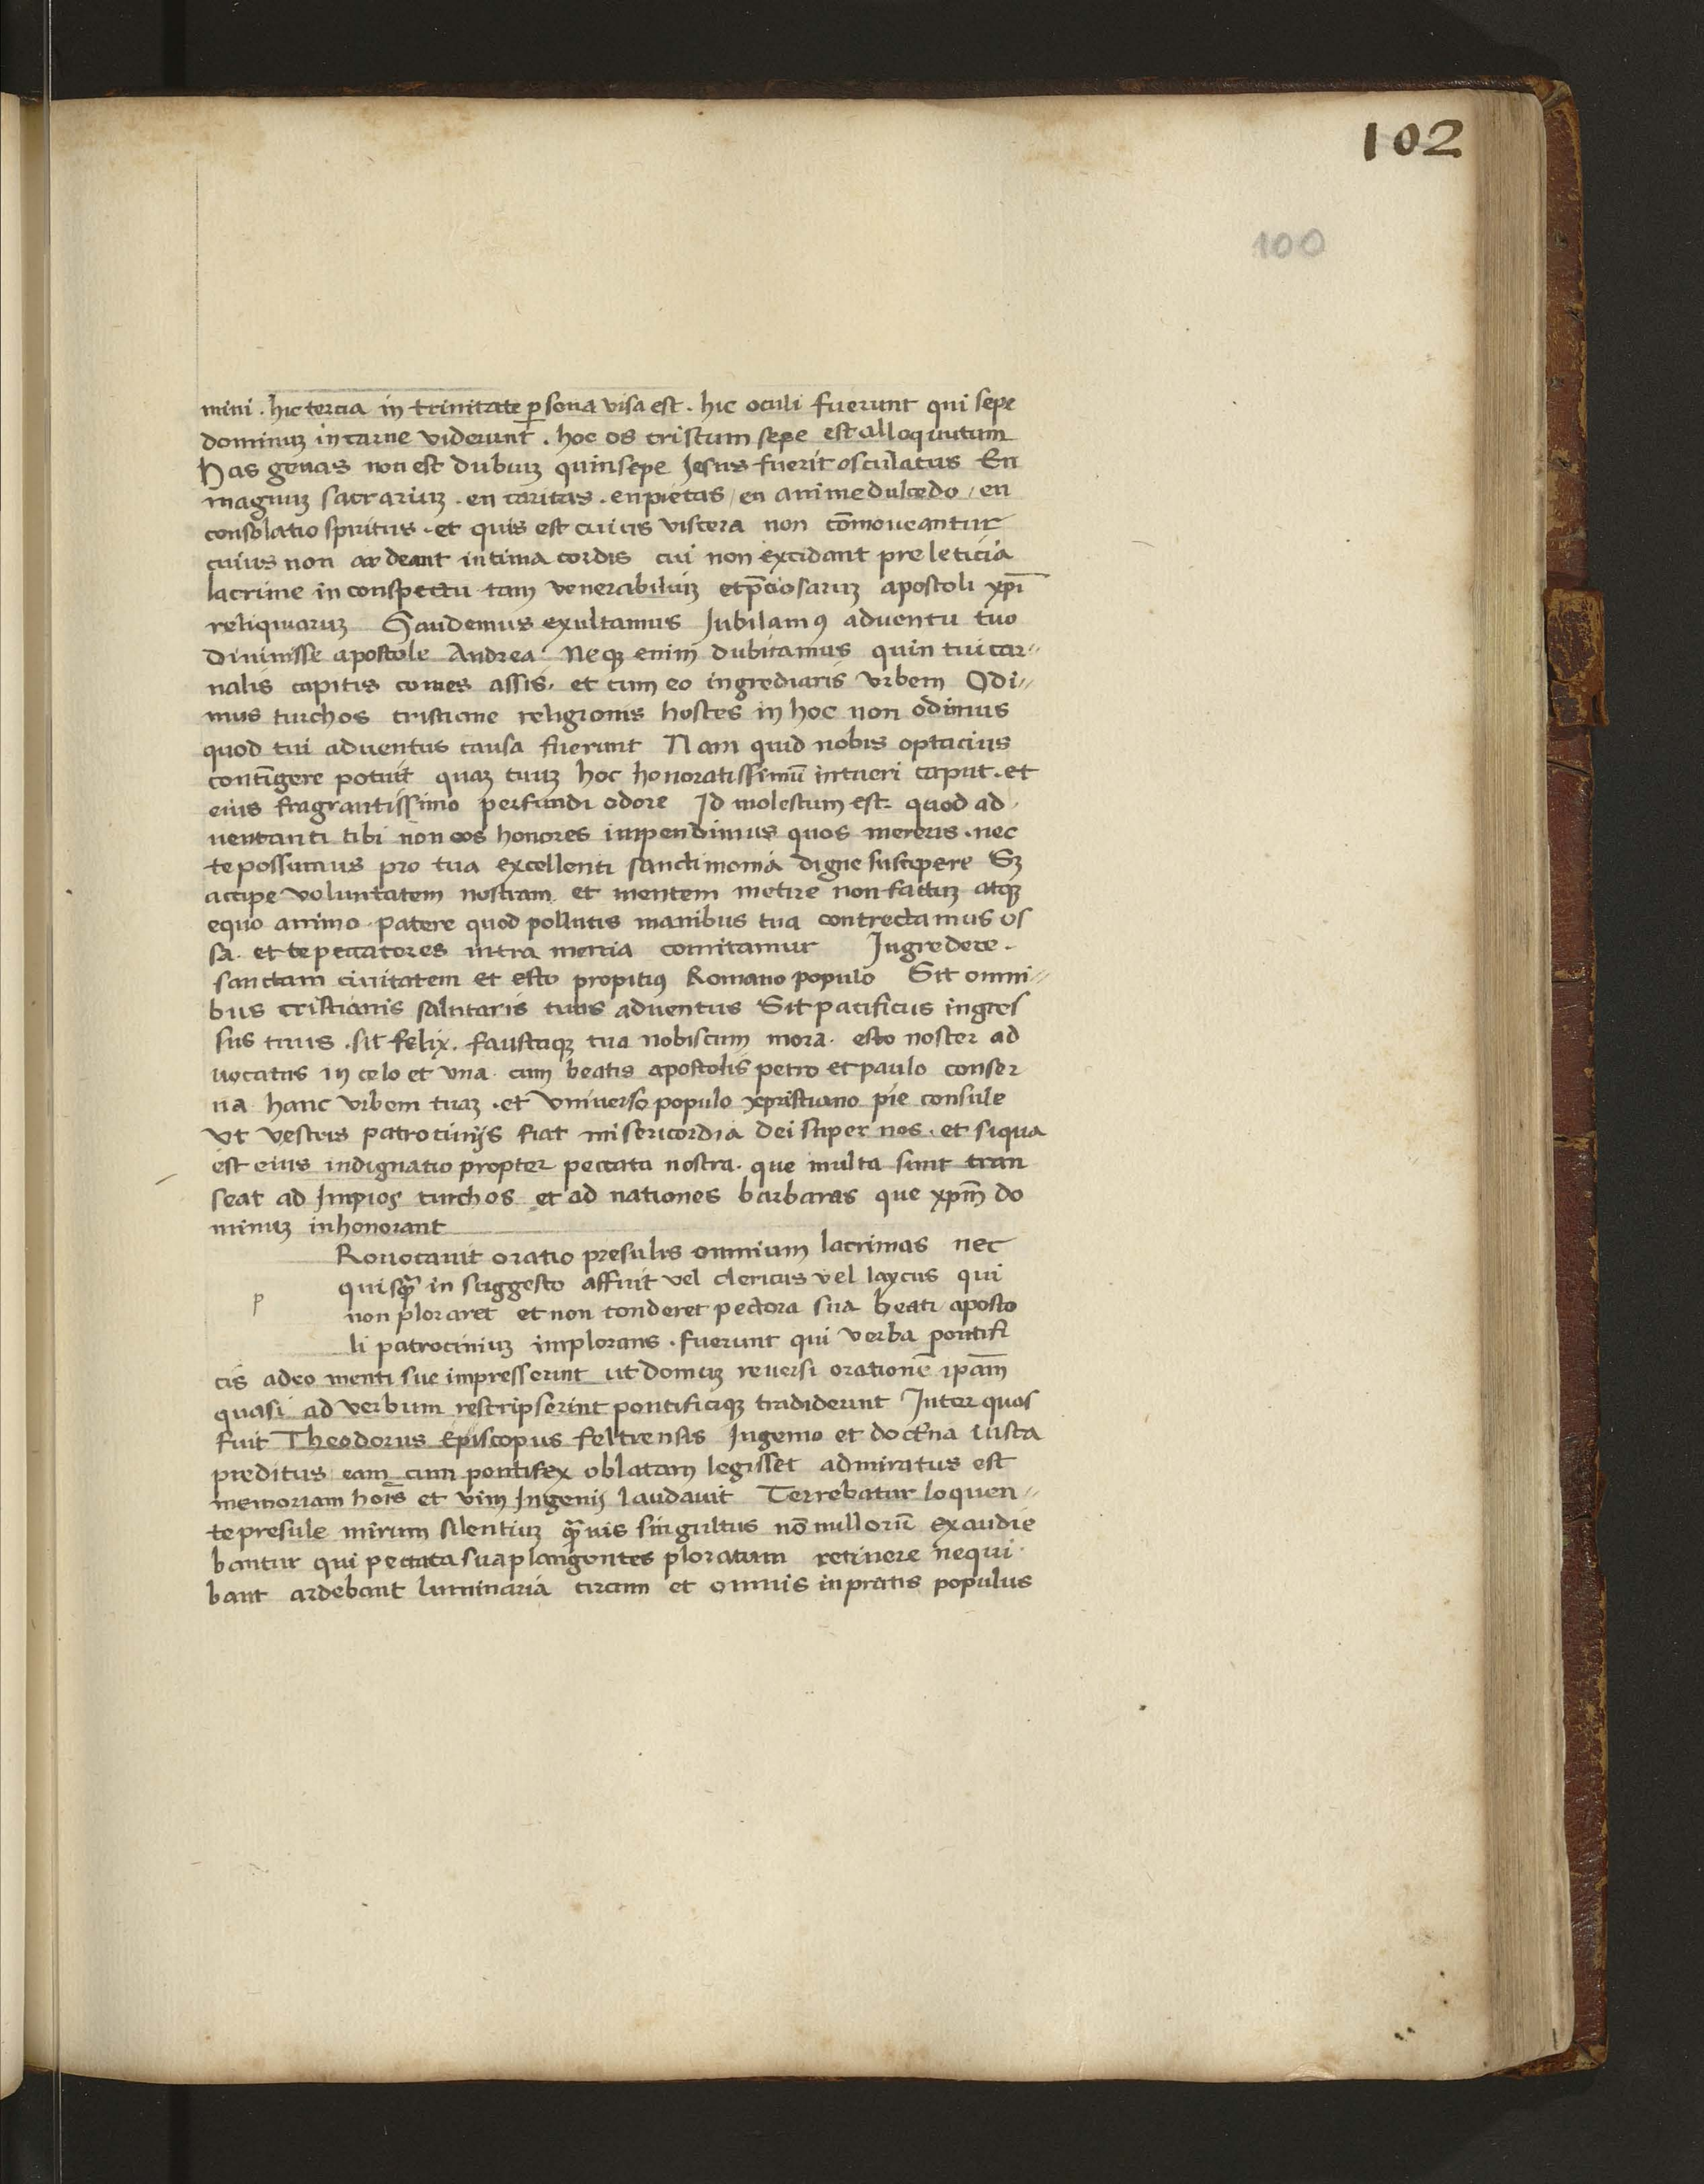 102
100
mini . hic tercia in trinitate p̲sona visa est . hic oculi fuerunt qui sepe
dominuʒ in carne viderunt . hoc os cristum sepe est alloquutum
Has genas non est dubiuʒ quin sepe Jesus fuerit osculatus En
magnuʒ sacrariuʒ . en caritas . en pietas / en anime dulcedo / en
consolatio spiritus . et quis est cuius viscera non cōmoueantur
cuius non ardeant intima cordis cui non excidant pre leticia
lacrime in conspectu tam venerabiliuʒ et p̄ciosaruʒ apostoli xp̄i
reliquiaruʒ Gaudemus exultamus Jubilamꝰ aduentu tuo
diuinisse apostole Andrea Neqʒ enim dubitamus quin tui car〃
nalis capitis comes assis . et cum eo ingrediaris vrbem Odi〃
mus turchos cristiane religionis hostes in hoc non odimus
quod tui aduentus causa fuerunt Nam quid nobis optacius
contīgere potuit quaʒ tuuʒ hoc honoratissimū intueri caput . et
eius fragrantissimo perfundi odore Id molestum est quod ad
uentanti tibi non eos honores impendimus quos mereris . nec
te possumus pro tua excellenti sanctimonia digne suscipere Sʒ
accipe voluntatem nostram et mentem metire non factuʒ atqʒ
equo animo patere quod pollutis manibus tua contrectamus os
sa . et te peccatores intra menia comitamur Ingredere .
sanctam ciuitatem et esto propitiꝰ Romano populo Sit omni〃
bus cristianis salutaris tuus aduentus Sit pacificus ingres
sus tuus . sit felix . faustaqʒ tua nobiscum mora . esto noster ad
uocatus in celo et vna cum beatis apostolis petro et paulo conser
ua hanc vrbem tuaʒ . et vniuerso populo xpristiano pie consule
vt vestris patrocinijs fiat misericordia dei super nos . et siqua
est eius indignatio propter peccata nostra . que multa sunt tran
seat ad Impios turchos et ad nationes barbaras que xp̄m do
minuʒ inhonorant
Rouocauit oratio presulis omnium lacrimas nec
quisqꝫ in suggesto affuit vel clericus vel laycus qui
p
non ploraret et non tonderet pectora sua beati aposto
li patrociniuʒ implorans . fuerunt qui verba pontifi
cis adeo menti sue impresserunt ut domuʒ reuersi orationē ip̄am
quasi ad verbum rescripserint pontificiqʒ tradiderunt Inter quos
fuit Theodorus Episcopus feltrensis Ingenio et doctrina iusta
preditus eam cum pontifex oblatam legisset admiratus est
memoriam hoīs et vim Ingenij laudauit Terrebatur loquen〃
te presule mirum silentiuʒ qꝫuis singultus nō nullorū exaudie
bantur qui peccata sua plangentes ploratum retinere nequi
bant ardebant luminaria circum et omnis in pratis populus